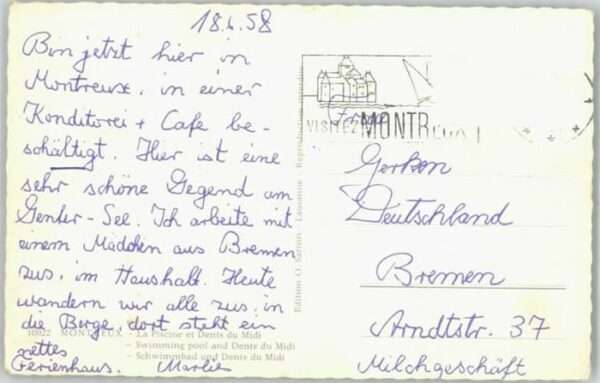 18.4.58
Bin jetzt hier in
Montreux, in einer
Konditorei + Cafe be-
schäftigt. Hier ist eine
sehr schöne Gegend am
Genfer-See. Ich arbeite mit
einem Mädchen aus Bremen
zus. im Haushalt. Heute
wandern wir alle zus. in
die Berge, dort steht ein
nettes
Ferienhaus. Marlies
10022 MONTREUX – La Piscine et Dents du Midi
– Swimming pool and Dents du Midi
– Schwimmbad und Dents du Midi
Lausanne
VISITEZ MONTREUX
Gerken
Deutschland
Bremen
Arndtstr. 37
Milchgeschäft